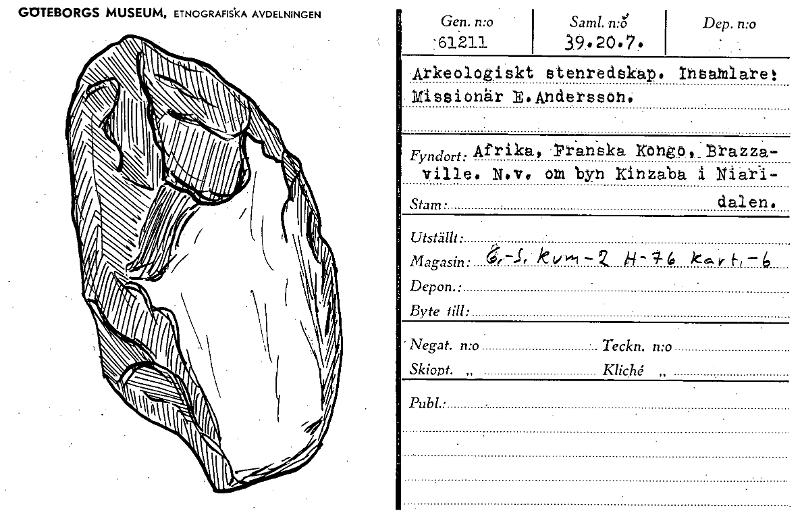 GÖTEBORGS MUSEUM, ETNOGRAFISKA AVDELNINGEN
Gen. n:o Saml. n:o Dep. n:o
61211 39.20.7.
Arkeologiskt stenredskap. Insamlare:
Missionär E.Andersson.
Fyndort: Afrika, Franska Kongo, Brazza-
ville. N.v. om byn Kinzaba i Niari-
Stam: dalen.
Utställt:
Magasin: kvm-2 H-76 kart.-6
Depon.:
Byte till:
Negat. n:o Teckn. n:o
Skiopt. „ Kliché „
Publ.: